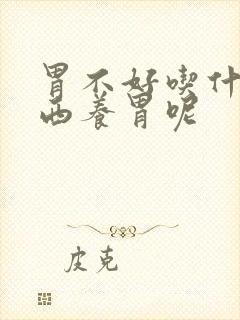 胃不好喫什
西养胃呢
皮克